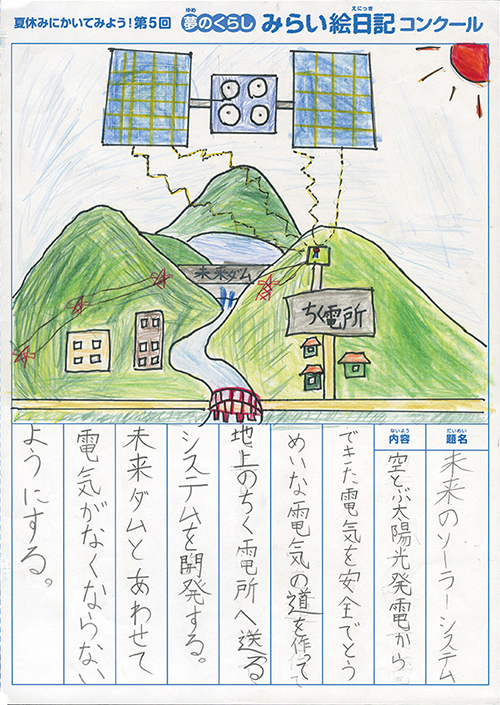 夏休みにかいてみよう!第5回 夢のくらし みらい絵日記コンクール
ゆめ
えにっき
未来ダム
ちく電所
だいめい
題名
未来のソーラーシステム
ないよう
内容
空とぶ太陽光発電から
できた電気を安全でとう
めいな電気の道を作って
地上のちく電所へ送る
システムを開発する。
未来ダムとあわせて
電気がなくならない
ようにする。